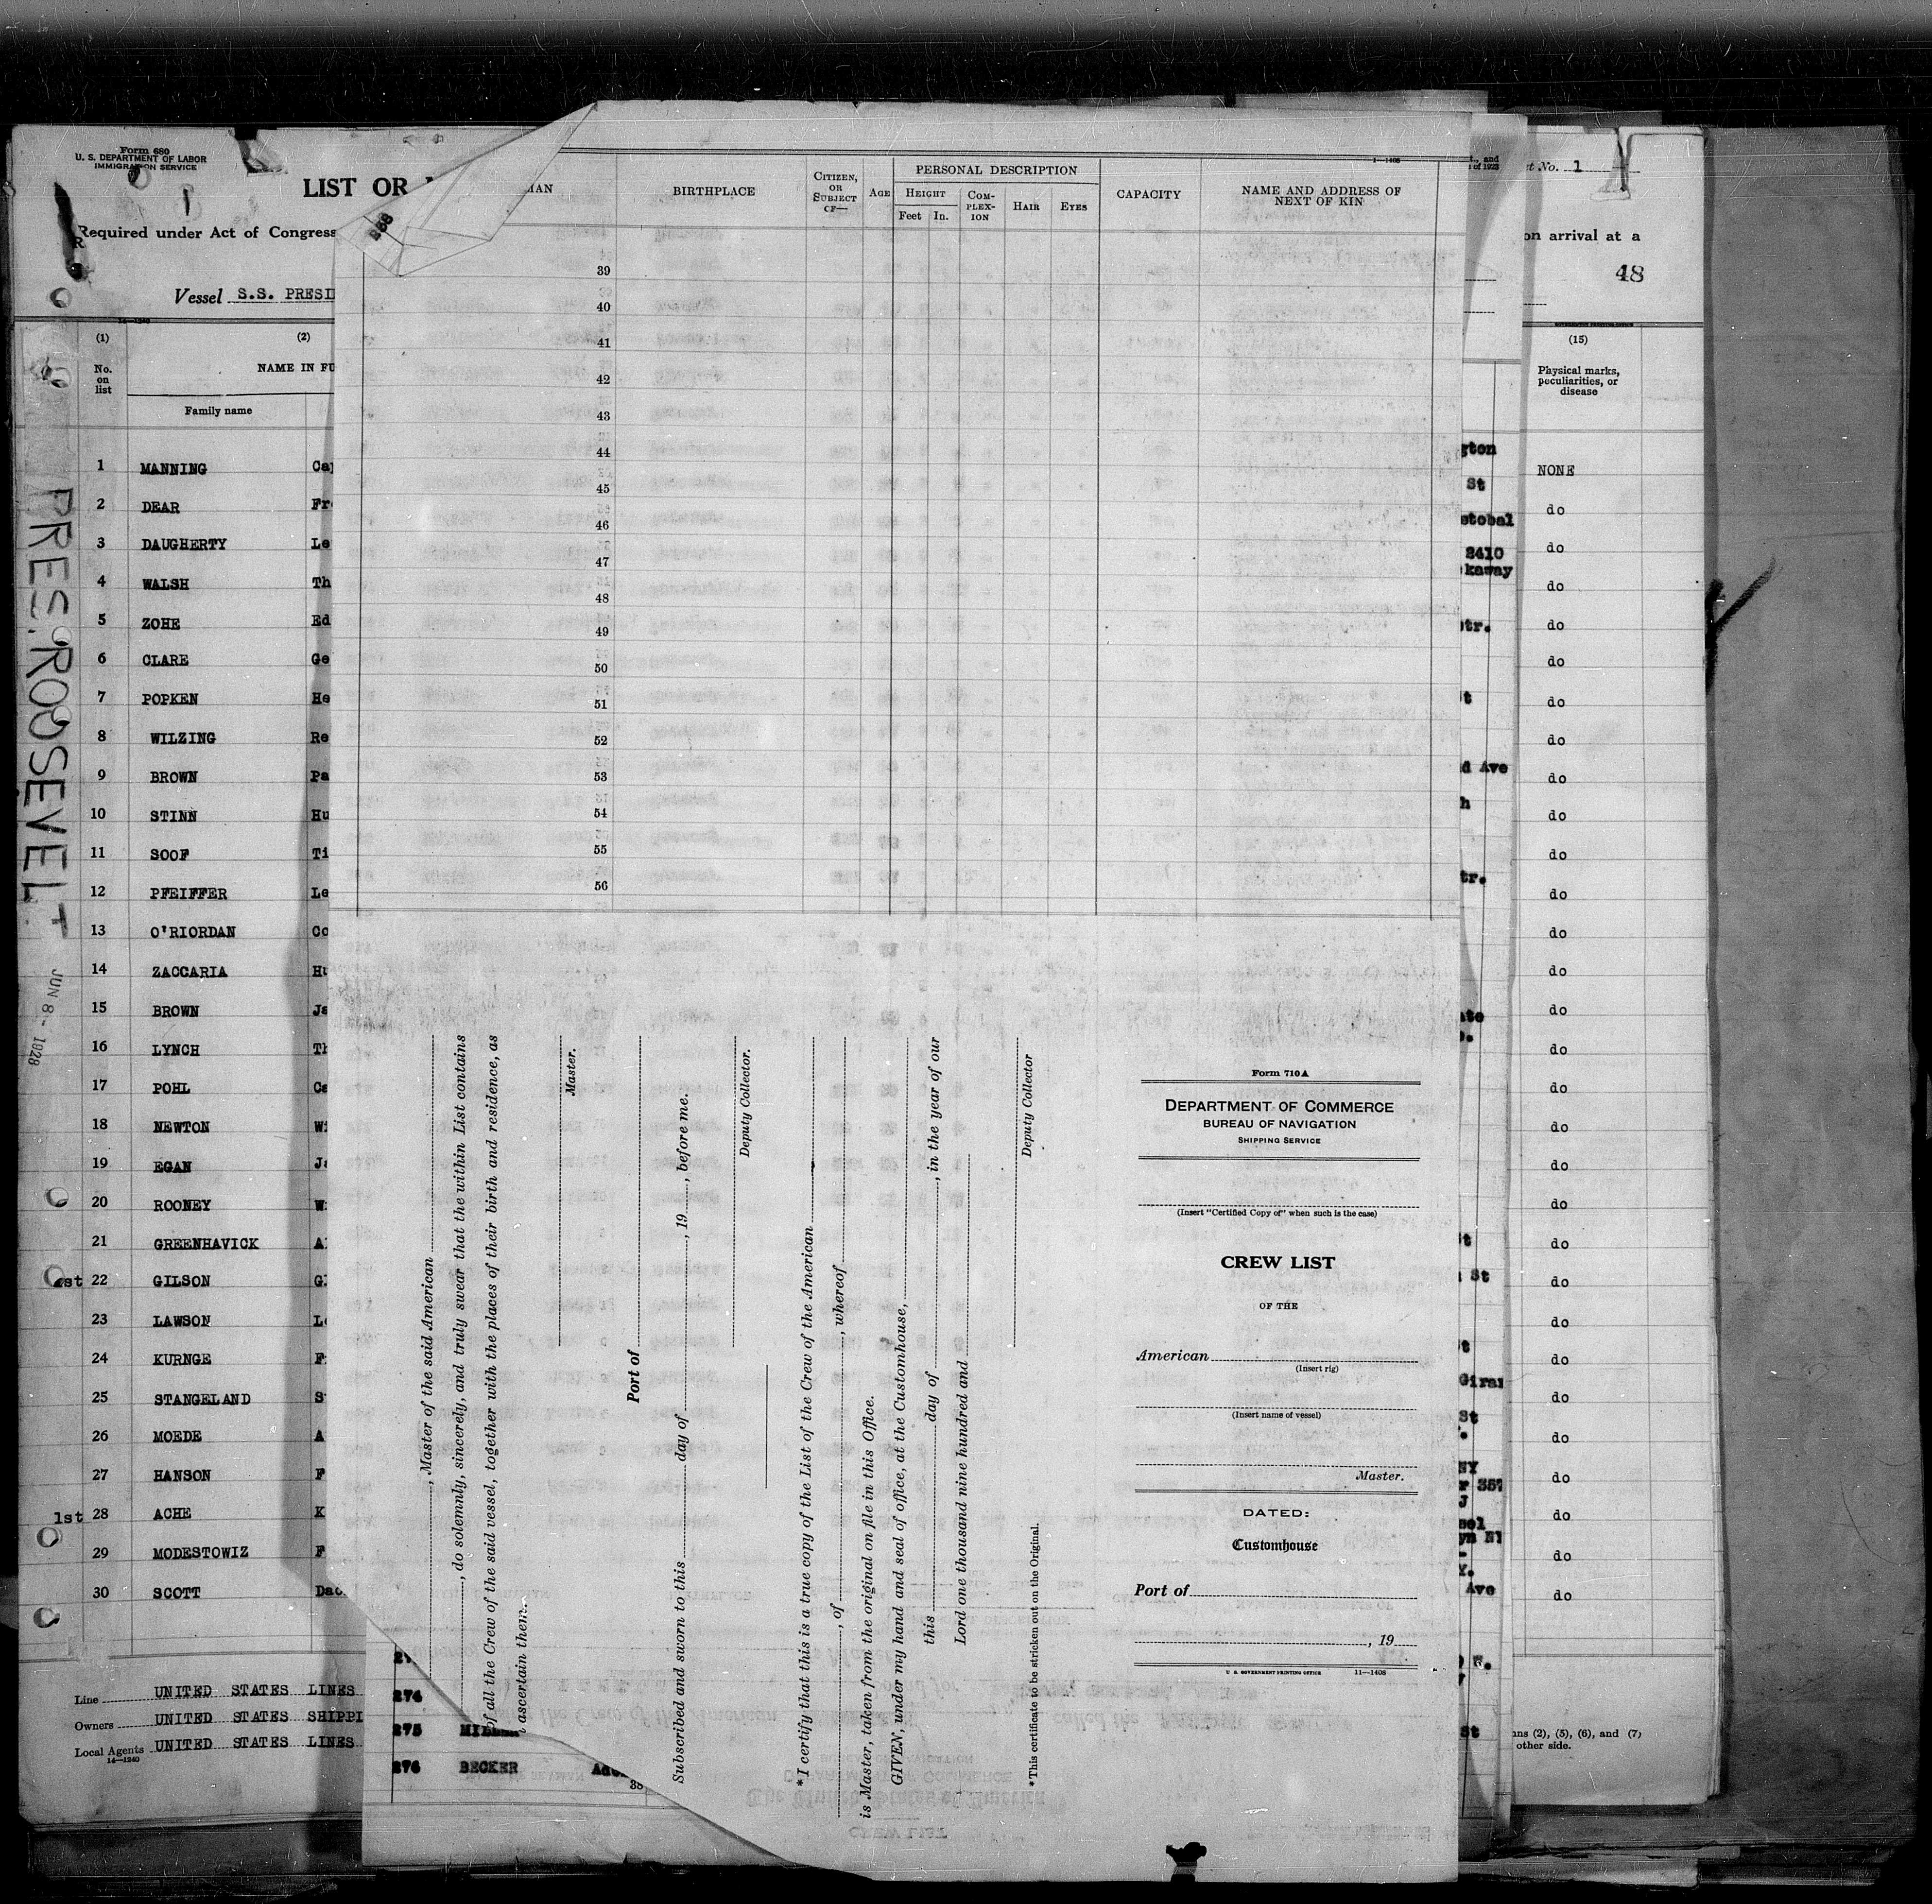 Form 680
U. S. DEPARTMENT OF LABOR
IMMIGRATION SERVICE
LIST OR
Required under Act of Congress
Vessel S.S. PRESID
(1)
(2)
No.
on
list
NAME IN FU
Family name
1 MANNING
2 DEAR Fr
3 DAUGHERTY Le
4 WALSH Th
5 ZOHE Ed
6 CLARE Ge
7 POPKEN He
8 WILZING Re
9 BROWN Pa
10 STINN Hu
11 SOOF Ti
12 PFEIFFER Le
13 O'RIORDAN Co
14 ZACCARIA Hu
15 BROWN Ja
16 LYNCH Th
17 POHL Ca
18 NEWTON Wi
19 EGAN Ja
20 ROONEY W
21 GREENHAVICK A
22 GILSON G
23 LAWSON L
24 KURNGE F
25 STANGELAND S
26 MOEDE A
27 HANSON F
1st 28 ACHE K
29 MODESTOWIZ F
30 SCOTT
Line UNITED STATES LINES
Owners UNITED STATES SHIPPI
Local Agents UNITED STATES LINES
14—1240
PRES. ROOSEVELT
JUN 8 - 1928
BIRTHPLACE
CITIZEN,
OR
SUBJECT
OF—
AGE
PERSONAL DESCRIPTION
HEIGHT
Feet In.
COM-
PLEX-
ION
HAIR
EYES
CAPACITY
NAME AND ADDRESS OF
NEXT OF KIN
39
40
41
42
43
44
45
46
47
48
49
50
51
52
53
54
55
56
, Master of the said American
, do solemnly, sincerely, and truly swear that the within List contains
of all the Crew of the said vessel, together with the places of their birth and residence, as
ascertain them.
Master.
Port of
Subscribed and sworn to this day of , 19 , before me.
Deputy Collector.
*I certify that this is a true copy of the List of the Crew of the American
, of , whereof
is Master, taken from the original on file in this Office.
GIVEN, under my hand and seal of office, at the Customhouse,
this day of , in the year of our
Lord one thousand nine hundred and
Deputy Collector
*This certificate to be stricken out on the Original.
Form 710A
DEPARTMENT OF COMMERCE
BUREAU OF NAVIGATION
SHIPPING SERVICE
(Insert "Certified Copy of" when such is the case)
CREW LIST
OF THE
American
(Insert rig)
(Insert name of vessel)
Master.
DATED:
Customhouse
Port of
, 19
U. S. GOVERNMENT PRINTING OFFICE 11—1408
274
275
276 BECKER
No. 1
on arrival at a
48
(15)
Physical marks,
peculiarities, or
disease
NONE
do
do
do
do
do
do
do
do
do
do
do
do
do
do
do
do
do
do
do
do
do
do
do
do
do
do
do
do
do
gton
St
stobal
2410
kaway
tr.
t
d Ave
h
tr.
St
St
Giran
St
NY
357
J
Ave
St
(2), (5), (6), and (7)
other side.